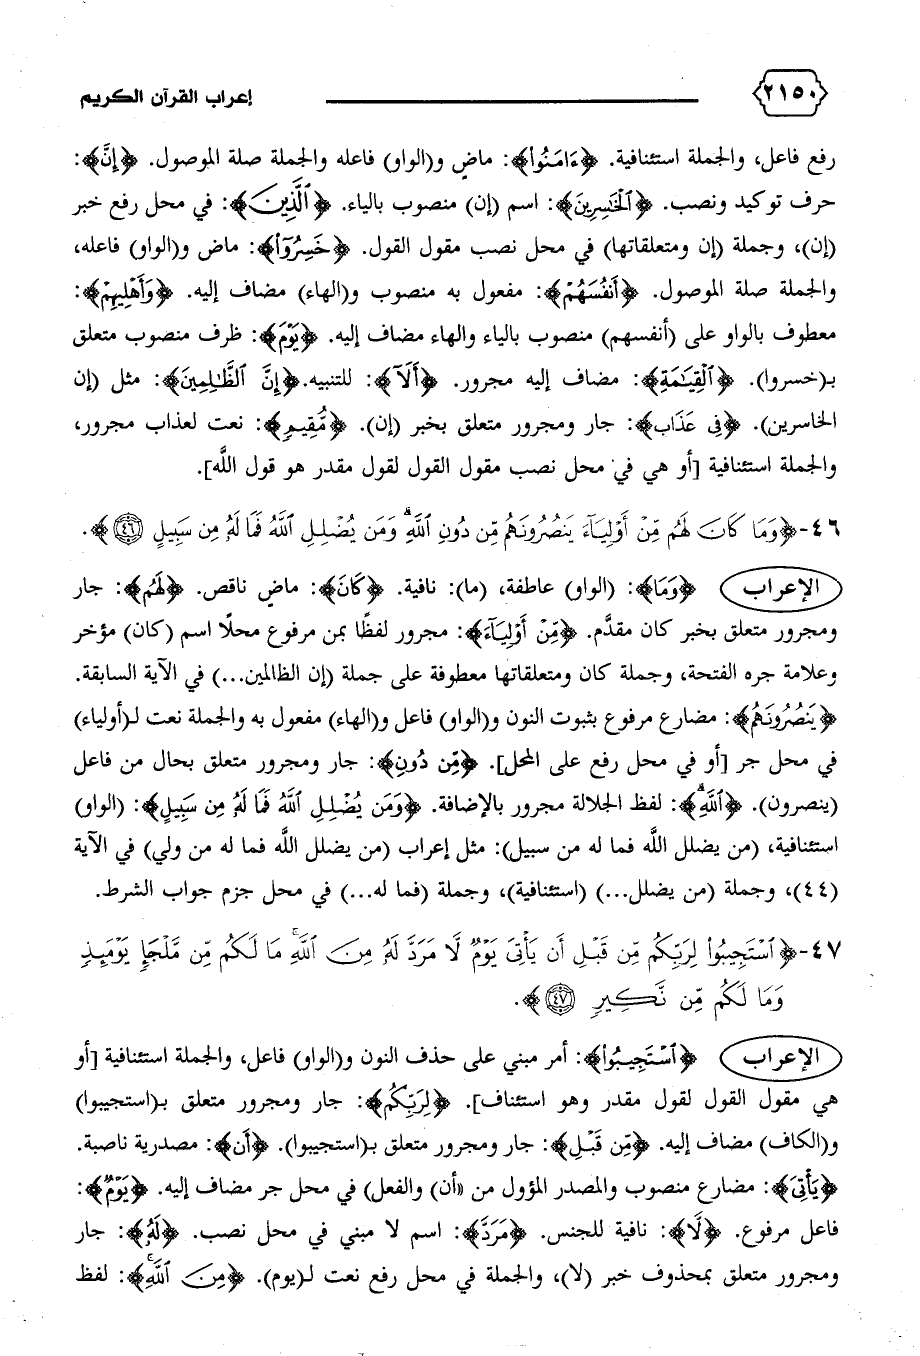 ٢١٥٠ إعراب القرآن الكريم
رفع فاعل، والجملة استئنافية. ﴿ءَامَنُوٓا۟﴾: ماضٍ و(الواو) فاعله والجملة صلة الموصول. ﴿إِنَّ﴾:
حرف توكيد ونصب. ﴿ٱلْخَٰسِرِينَ﴾: اسم (إن) منصوب بالياء. ﴿ٱلَّذِينَ﴾: في محل رفع خبر
(إن)، وجملة (إن ومتعلقاتها) في محل نصب مقول القول. ﴿خَسِرُوٓا۟﴾: ماض و(الواو) فاعله،
والجملة صلة الموصول. ﴿أَنفُسَهُمْ﴾: مفعول به منصوب و(الهاء) مضاف إليه. ﴿وَأَهْلِيهِمْ﴾:
معطوف بالواو على (أنفسهم) منصوب بالياء والهاء مضاف إليه. ﴿يَوْمَ﴾: ظرف منصوب متعلق
بـ(خسروا). ﴿ٱلْقِيَٰمَةِ﴾: مضاف إليه مجرور. ﴿أَلَآ﴾: للتنبيه. ﴿إِنَّ ٱلظَّٰلِمِينَ﴾: مثل (إن
الخاسرين). ﴿فِى عَذَابٍ﴾: جار ومجرور متعلق بخبر (إن). ﴿مُّقِيمٍ﴾: نعت لعذاب مجرور،
والجملة استئنافية [أو هي في محل نصب مقول القول لقول مقدر هو قول اللَّه].
٤٦-﴿وَمَا كَانَ لَهُم مِّنْ أَوْلِيَآءَ يَنصُرُونَهُم مِّن دُونِ ٱللَّهِۗ وَمَن يُضْلِلِ ٱللَّهُ فَمَا لَهُۥ مِن سَبِيلٍ ٤٦﴾.
الإعراب ﴿وَمَا﴾: (الواو) عاطفة، (ما): نافية. ﴿كَانَ﴾: ماضٍ ناقص. ﴿لَهُم﴾: جار
ومجرور متعلق بخبر كان مقدَّم. ﴿مِّنْ أَوْلِيَآءَ﴾: مجرور لفظًا بمن مرفوع محلًا اسم (كان) مؤخر
وعلامة جره الفتحة، وجملة كان ومتعلقاتها معطوفة على جملة (إن الظالمين...) في الآية السابقة.
﴿يَنصُرُونَهُم﴾: مضارع مرفوع بثبوت النون و(الواو) فاعل و(الهاء) مفعول به والجملة نعت لـ(أولياء)
في محل جر [أو في محل رفع على المحل]. ﴿مِّن دُونِ﴾: جار ومجرور متعلق بحال من فاعل
(ينصرون). ﴿ٱللَّهِۗ﴾: لفظ الجلالة مجرور بالإضافة. ﴿وَمَن يُضْلِلِ ٱللَّهُ فَمَا لَهُۥ مِن سَبِيلٍ﴾: (الواو)
استئنافية، (من يضلل اللَّه فما له من سبيل): مثل إعراب (من يضلل اللَّه فما له من ولي) في الآية
(٤٤)، وجملة (من يضلل...) (استئنافية)، وجملة (فما له...) في محل جزم جواب الشرط.
٤٧-﴿ٱسْتَجِيبُوا۟ لِرَبِّكُم مِّن قَبْلِ أَن يَأْتِىَ يَوْمٌ لَّا مَرَدَّ لَهُۥ مِنَ ٱللَّهِۚ مَا لَكُم مِّن مَّلْجَإٍ يَوْمَئِذٍ
وَمَا لَكُم مِّن نَّكِيرٍ ٤٧﴾.
الإعراب ﴿ٱسْتَجِيبُوا۟﴾: أمر مبني على حذف النون و(الواو) فاعل، والجملة استئنافية [أو
هي مقول القول لقول مقدر وهو استئناف]. ﴿لِرَبِّكُم﴾: جار ومجرور متعلق بـ(استجيبوا)
و(الكاف) مضاف إليه. ﴿مِّن قَبْلِ﴾: جار ومجرور متعلق بـ(استجيبوا). ﴿أَن﴾: مصدرية ناصبة.
﴿يَأْتِىَ﴾: مضارع منصوب والمصدر المؤول من «أن) والفعل) في محل جر مضاف إليه. ﴿يَوْمٌ﴾:
فاعل مرفوع. ﴿لَّا﴾: نافية للجنس. ﴿مَرَدَّ﴾: اسم لا مبني في محل نصب. ﴿لَهُۥ﴾: جار
ومجرور متعلق بمحذوف خبر (لا)، والجملة في محل رفع نعت لـ(يوم). ﴿مِنَ ٱللَّهِۚ﴾: لفظ